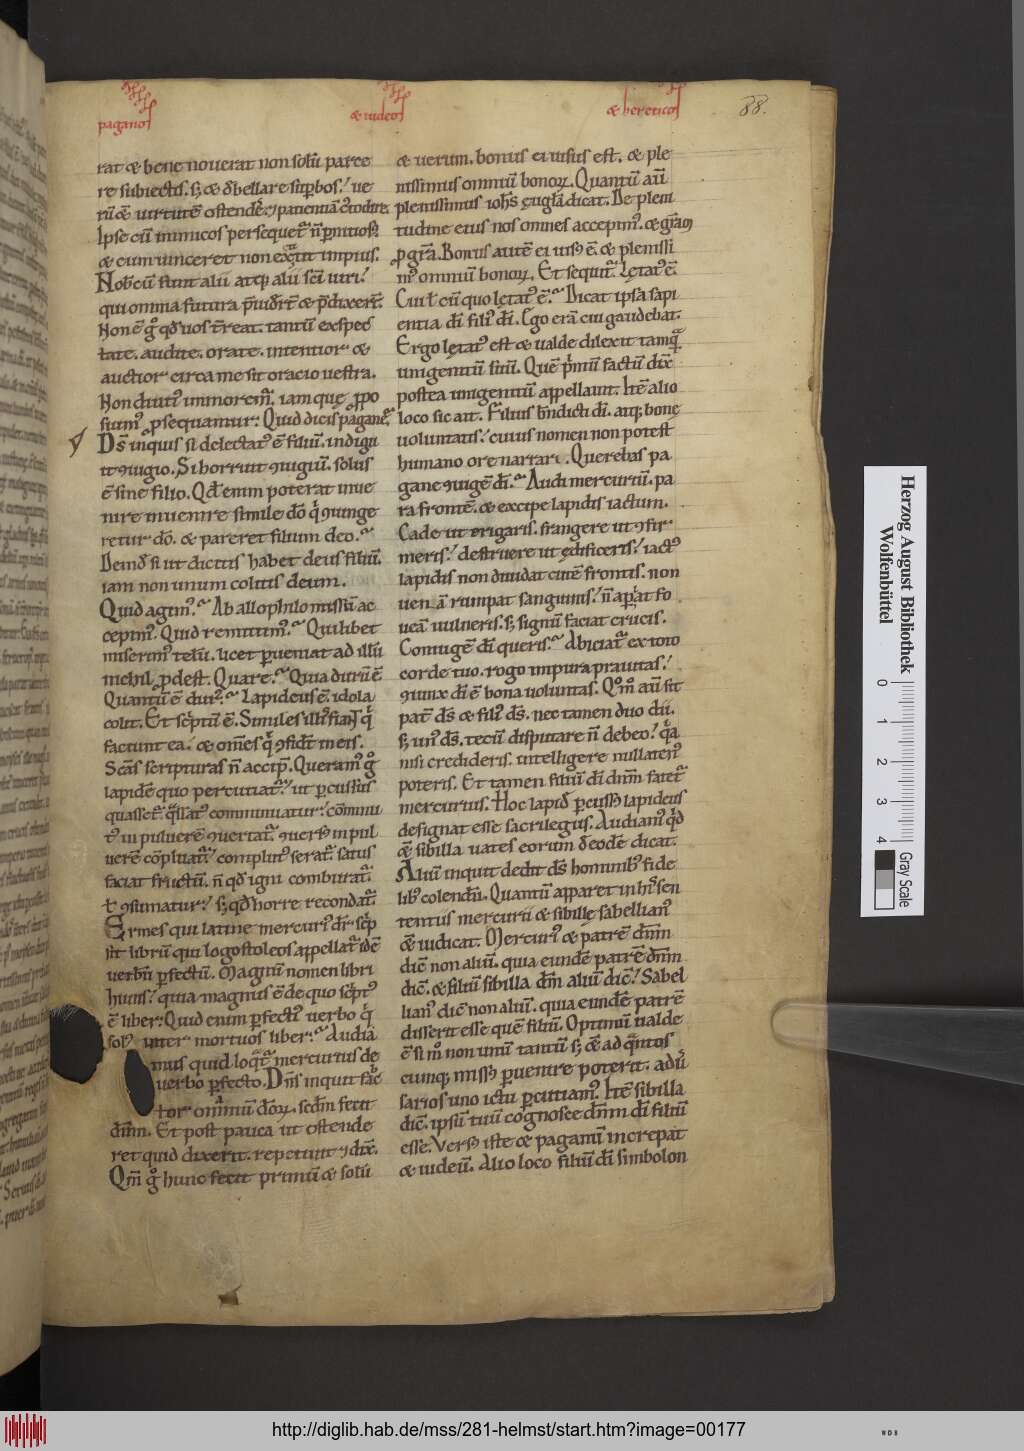 paganos
& iudeos
& hereticos
88.
rat & bene nouerat non solū parce
re subiectis. s; & d̄bellare suꝑbos. ue
rū &̄ uirtutē ostenderꝫ & patientiā
Ipse cū inimicos
& eum uinceret non impius.
Nob̄ cū sunt alii atq; alii sc̄i uiri.
qui omnia futura p̄uider̄t & p̄dixer̄t.
Non ē g̊ qd̄ uos t̄reat. tantū exspec
tate. audite. orate. intentior &
auctior circa me sit oracio uestra.
Non diuti' immorem̄. iam que ꝓpo
suim' ꝓsequamur. Quid dicis pagane.
Ds̄ inquis si delectat' ē filiū. indigu
it ꝯiugio. Si horruit ꝯiugiū. solus
ē sine filio. Qd̄ enim poterat inue
nire inuenire simile dō q̇ ꝯiunge
retur dō. & pareret filium deo.
Deinde si ut dicitis habet deus filiū.
iam non unum colitis deum.
Quid agim'. Ab allophilo missū ac
cepim'. Quid remittim'. Quilibet
miserim' telū. licet ꝑueniat ad illū
nichil ꝓdest. Quare. Quia durū ē
Quantū ē dur'. Lapideus ē. idola
colit. Et sc̄ptū ē. Similes illis fiant q̇
faciunt ea. & om̄es q̇ ꝯfidt̄ in eis.
Scās scripturas n̄ accip̄. Queram' g̊
lapidē quo percutiat. ut ꝑcussus
quasset. communiatur. commu
t' in puluerē ꝯuertat. ꝯuers' in pul
uerē cōpluat. complut' serat. satus
faciat fructū. n̄ qd̄ igni comburat.
t̄ ꝯsumatur. s; qd̄ horre recondat.
Ermes qui latine mercuri' dr̄ sc̄p
sit librū qui logostoleos appellat idē
uerbū ꝑfectū. Magnū nomen libri
huius. quia magnus ē de quo sc̄pt'
ē liber. Quid enim ꝑfecti' uerbo q̇
sol' inter mortuos liber. Audia
mus quid loq̄t mercurius de
uerbo ꝑfecto. Dn̄s inquit fac̄
tor omniū dōꝝ. scd̄m fecit
dn̄m. Et post pauca ut ostende
ret quid dixerit. repetiuit & dix̄.
Qm̄ g̊ hunc fecit primū & solū
& uerum. bonus ei uisus est. & ple
nissimus omniū bonoꝝ. Quantū aū
plenissimus ioh̄s euglā dicat. De pleni
tudine eius nos omnes accepim'. & grām
ꝓ grā. Bonus autē ei uis' ē. & plenissi
m' omniū bonoꝝ. Et sequit. Letat' ē.
Cui t̄ cū quo letat' ē. Dicat ipsa sapi
entia dī fili' dī. Ego erā cui gaudebat.
Ergo letat' est & ualde dilexit tamq̄
unigenitū suū. Quē p̄mū factū dix̄
postea unigenitū appellauit. Itē alio
loco sic ait. Filius bn̄dicti dī. atq; bone
uoluntatis. cuius nomen non potest
humano ore narrari. Querebas pa
gane ꝯiugē dī. Audi mercuriū. pa
ra frontē. & excipe lapidis iactum.
Cade ut erigaris. frangere ut ꝯfir
meris. destruere ut edificeris. iact'
lapidis non diuidat cutē frontis. non
uenā rumpat sanguinis. n̄ aꝑiat fo
ueā uulneris. s; signū faciat crucis.
Coniugē dī queris. Abiciat ex toto
corde tuo. rogo impura prauitas.
ꝯiunx dī ē bona uoluntas. Qm̊ aū sit
pat̄ ds̄ & fili' ds̄. nec tamen duo dii.
s; un' ds̄. tecū disputare n̄ debeo. q̇a
nisi credideris. intelligere nullaten'
poteris. Et tamen filiū dī dn̄m fatet
mercurius. Hoc lapid̄ ꝑcuss' lapideus
designat esse sacrilegus. Audiam' q̇d
&̄ sibilla uates eorum d̄eodē dicat.
Aliū inquit dedit ds̄ hominib' fide
lib' colendū. Quantū apparet in hi's sen
tentus mercurii & sibille sabellian'
&̄ iudicat. Mercuri' & patrē dn̄m
dic̄ non aliū. quia eundē patrē dn̄m
dic̄. & filiū sibilla dn̄m aliū dic̄. Sabel
lian' dic̄ non aliū. quia eundē patrē
disserit esse quē filiū. Optimū ualde
ē si m̊ non unū tantū s; & ad q̇ntos
cunq; miss' ꝑuenire poterit. aduer
sarios uno ictu ꝑcutiam'. Itē sibilla
dic̄. ipsū tuū cognosce dn̄m dī filiū
esse. Vers' iste & paganū increpat
& iudeū. Alio loco filiū dī simbolon
Herzog August Bibliothek
Wolfenbüttel
0 1 2 3 4
Gray Scale
http://diglib.hab.de/mss/281-helmst/start.htm?image=00177